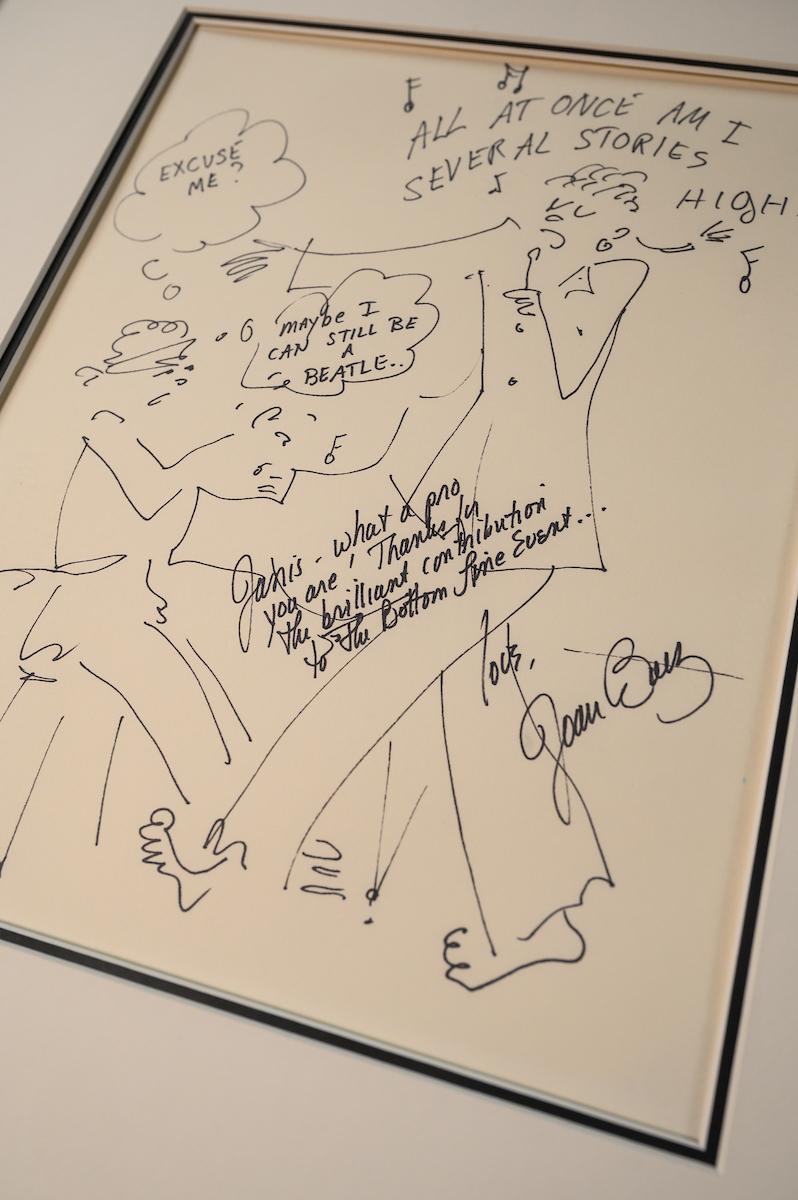 ALL AT ONCE AM I
SEVERAL STORIES
HIGH!
EXCUSE
ME?
MAYBE I
CAN STILL BE
A
BEATLE..
Janis - what a pro
you are! Thanks for
the brilliant contribution
to the Bottom Line Event...
Joan Baez